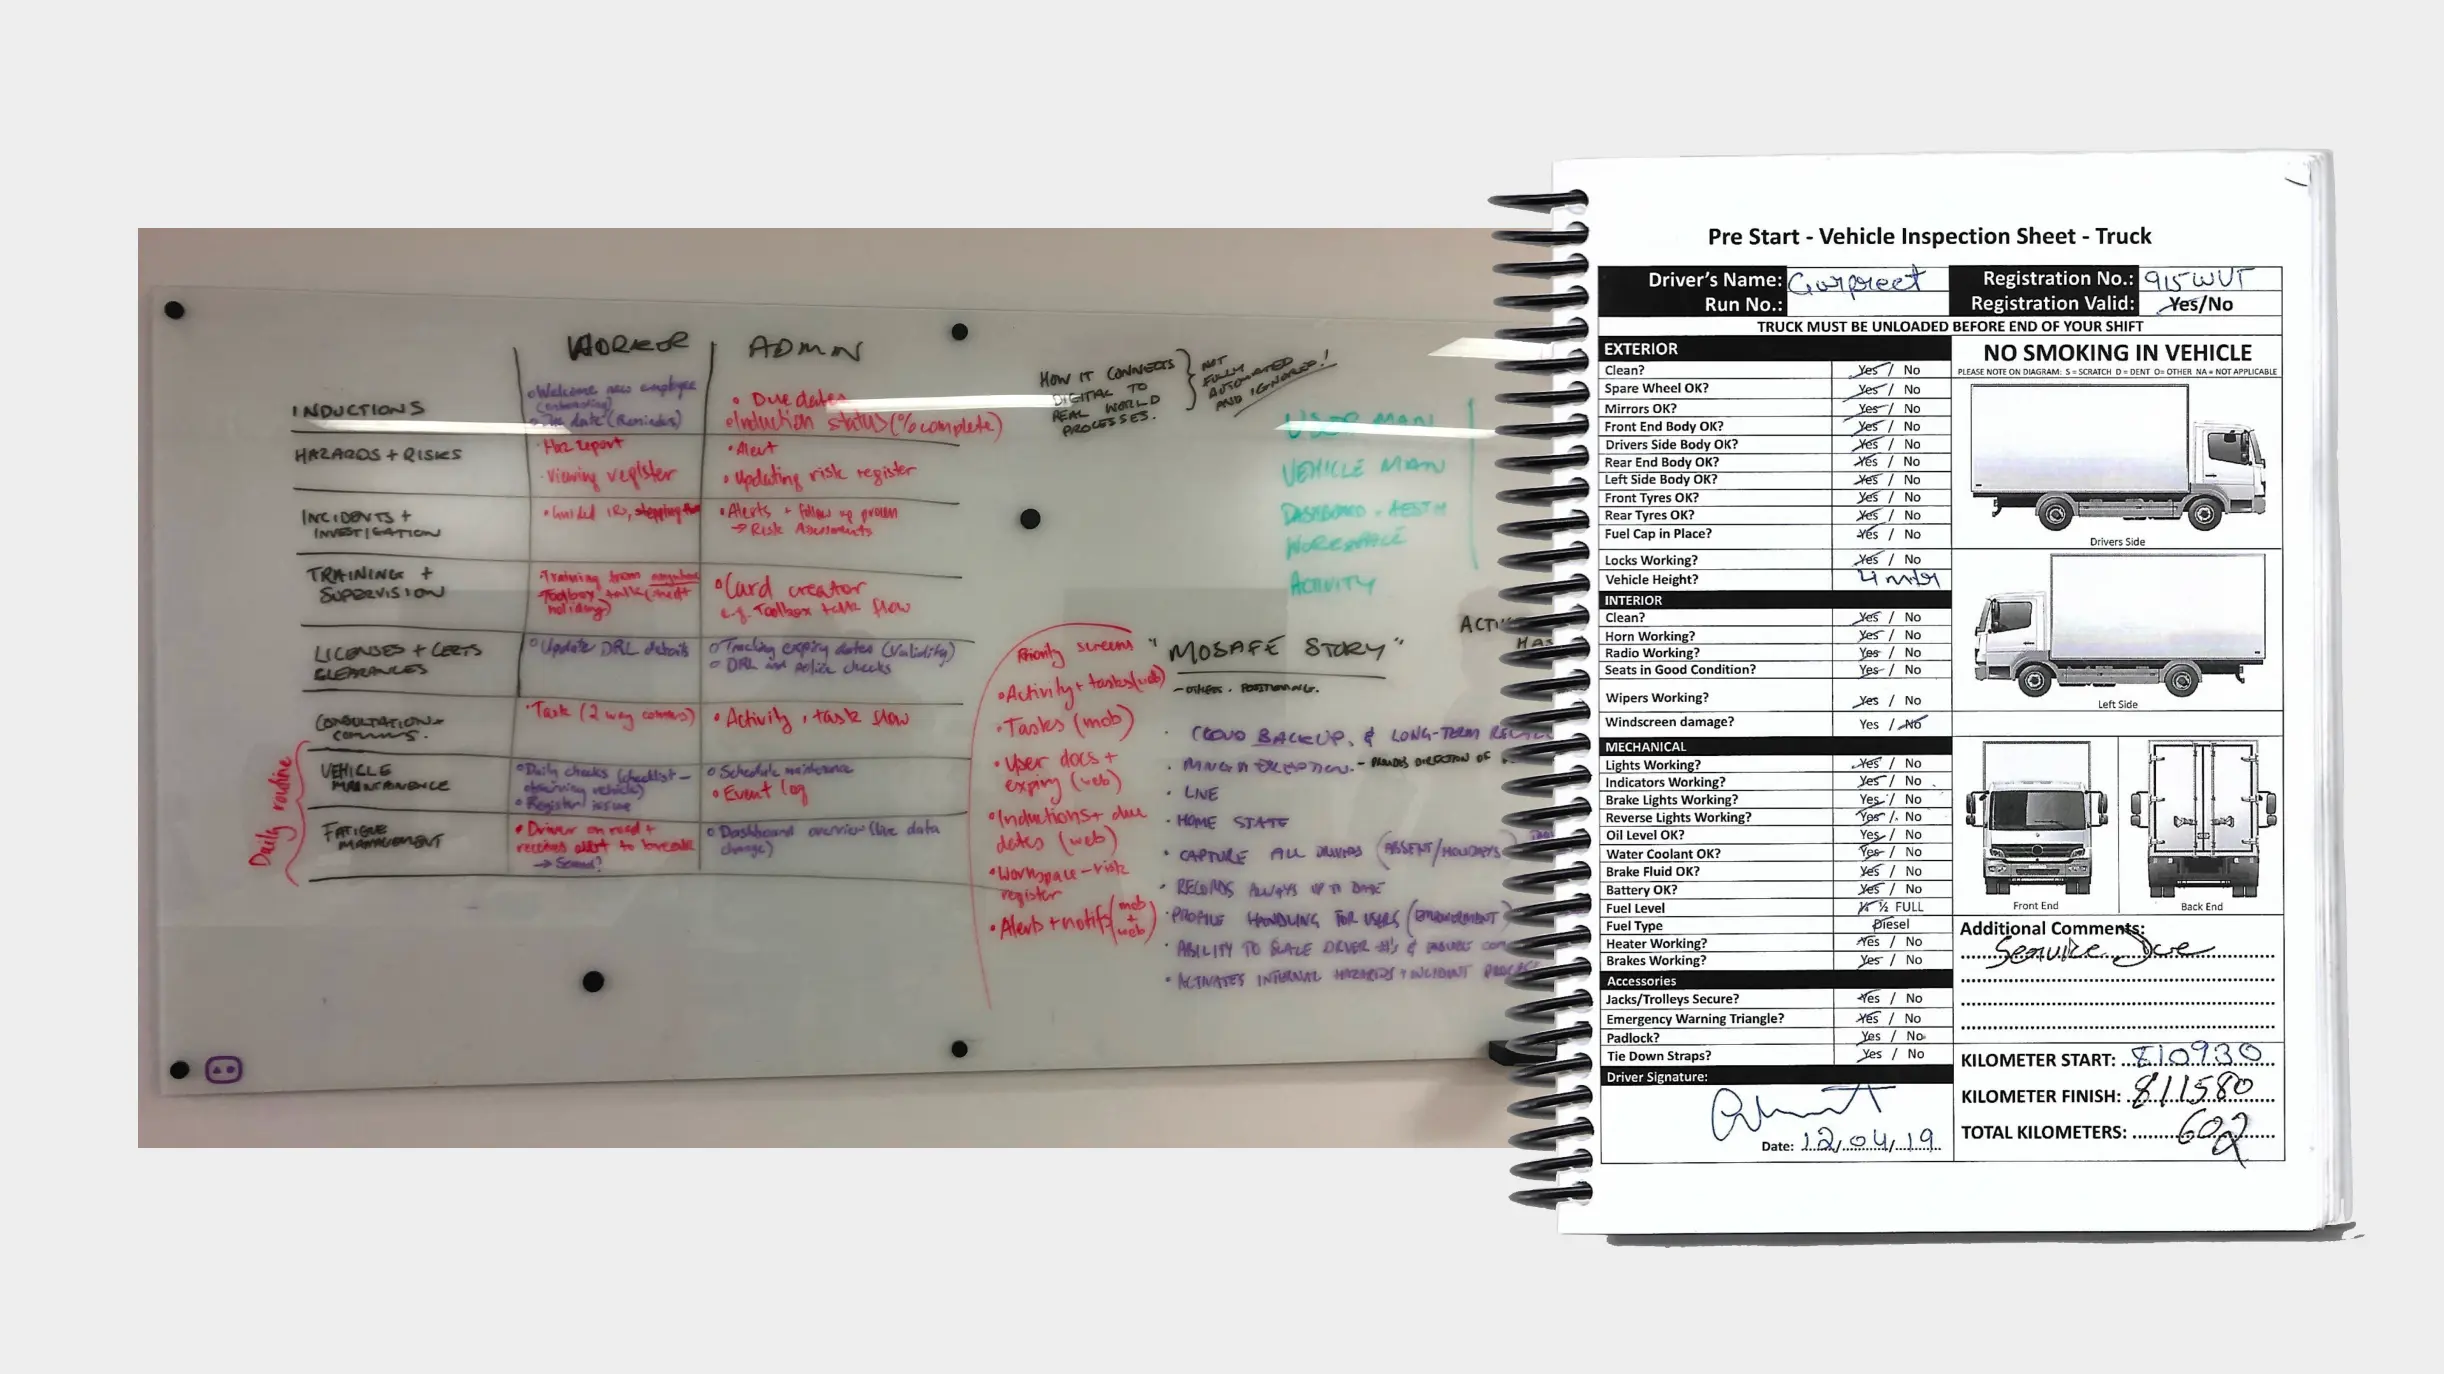 WORKER
ADMIN
INDUCTIONS
Welcome new employee
(onboarding)
date (Reminder)
Due dates
Induction status (% complete)
HAZARDS + RISKS
Haz report
Viewing register
Alert
Updating risk register
INCIDENTS +
INVESTIGATION
Guided IRs,
Alerts + follow up
→ Risk Assessments
TRAINING +
SUPERVISION
Training from anywhere
Toolbox talk
Card creator
e.g. Toolbox talk flow
LICENSES + CERTS
CLEARANCES
Update DRL details
Tracking expiry dates (validity)
DRL and police checks
CONSULTATION +
COMMS.
Task (2 way comms)
Activity, task flow
Daily routine
VEHICLE
MAINTENANCE
Daily checks (checklist –
observing vehicle)
Register issue
Schedule maintenance
Event log
FATIGUE
MANAGEMENT
Driver on road +
receives alert to
→ Sound?
Dashboard overview (live data
change)
HOW IT CONNECTS
DIGITAL TO
REAL WORLD
PROCESSES.
NOT
FULLY
AUTOMATED
AND IGNORED!
USER MAN
VEHICLE MAN
DASHBOARD - AESTH
WORKSPACE
ACTIVITY
Priority screens
Activity + tasks (web)
Tasks (mob)
User docs +
expiry (web)
Inductions + due
dates (web)
Workspace – risk
register
Alerts + notifs (mob + web)
"MOSAFE STORY"
– OTHERS. POSITIONING.
CLOUD BACKUP, & LONG-TERM
– PROVIDES DIRECTION OF
LIVE
HOME STATE
CAPTURE ALL DRIVERS (ABSENT/HOLIDAYS)
RECORDS ALWAYS UP TO DATE
PROFILE HANDLING FOR USERS (EMPOWERMENT)
ABILITY TO SCALE DRIVER #'S &
ACTIVATES INTERNAL HAZARDS + INCIDENT
Pre Start - Vehicle Inspection Sheet - Truck
Driver's Name: Gurpreet
Run No.:
Registration No.: 915WUT
Registration Valid: Yes/No
TRUCK MUST BE UNLOADED BEFORE END OF YOUR SHIFT
EXTERIOR
Clean? Yes / No
Spare Wheel OK? Yes / No
Mirrors OK? Yes / No
Front End Body OK? Yes / No
Drivers Side Body OK? Yes / No
Rear End Body OK? Yes / No
Left Side Body OK? Yes / No
Front Tyres OK? Yes / No
Rear Tyres OK? Yes / No
Fuel Cap in Place? Yes / No
Locks Working? Yes / No
Vehicle Height? 4 mtr
INTERIOR
Clean? Yes / No
Horn Working? Yes / No
Radio Working? Yes / No
Seats in Good Condition? Yes / No
Wipers Working? Yes / No
Windscreen damage? Yes / No
MECHANICAL
Lights Working? Yes / No
Indicators Working? Yes / No
Brake Lights Working? Yes / No
Reverse Lights Working? Yes / No
Oil Level OK? Yes / No
Water Coolant OK? Yes / No
Brake Fluid OK? Yes / No
Battery OK? Yes / No
Fuel Level ¼ ½ FULL
Fuel Type Diesel
Heater Working? Yes / No
Brakes Working? Yes / No
Accessories
Jacks/Trolleys Secure? Yes / No
Emergency Warning Triangle? Yes / No
Padlock? Yes / No
Tie Down Straps? Yes / No
Driver Signature:
Date: 12/04/19
NO SMOKING IN VEHICLE
PLEASE NOTE ON DIAGRAM: S = SCRATCH D = DENT O= OTHER NA = NOT APPLICABLE
Drivers Side
Left Side
Front End
Back End
Additional Comments:
Service Due
KILOMETER START: 810930
KILOMETER FINISH: 811580
TOTAL KILOMETERS: 602